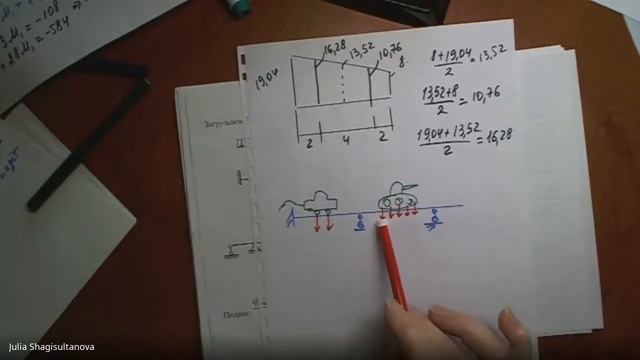 = -108
= -584
19,04
16,28
13,52
10,76
8.
2 4 2
8+19,04
2
= 13,52
13,52+8
2
= 10,76
19,04+13,52
2
= 16,28
Загружен
Julia Shagisultanova